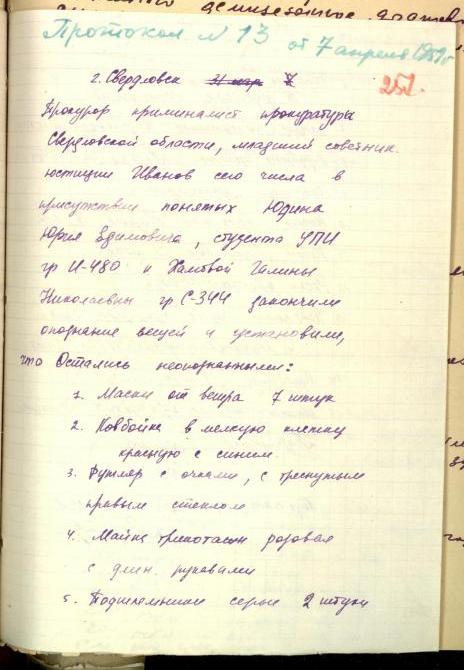 Протокол N 13 от 7 апреля 1959г
251.
г. Свердловск 31 мар 7
Прокурор криминалист прокуратуры
Свердловской области, младший советник
юстиции Иванов сего числа в
присутствии понятых Юдина
Юрия Ефимовича, студента УПИ
гр И-480 и Хамтвой Галины
Николаевны гр С-344 закончили
опознание вещей и установили,
что Остались неопознанными:
1. Маски от ветра 7 штук
2. Ковбойка в мелкую клетку
красную с синим
3. Футляр с очками, с треснутым
правым стеклом
4. Майка трикотажн розовая
с длин. рукавами
5. Подшлемники серые 2 штуки